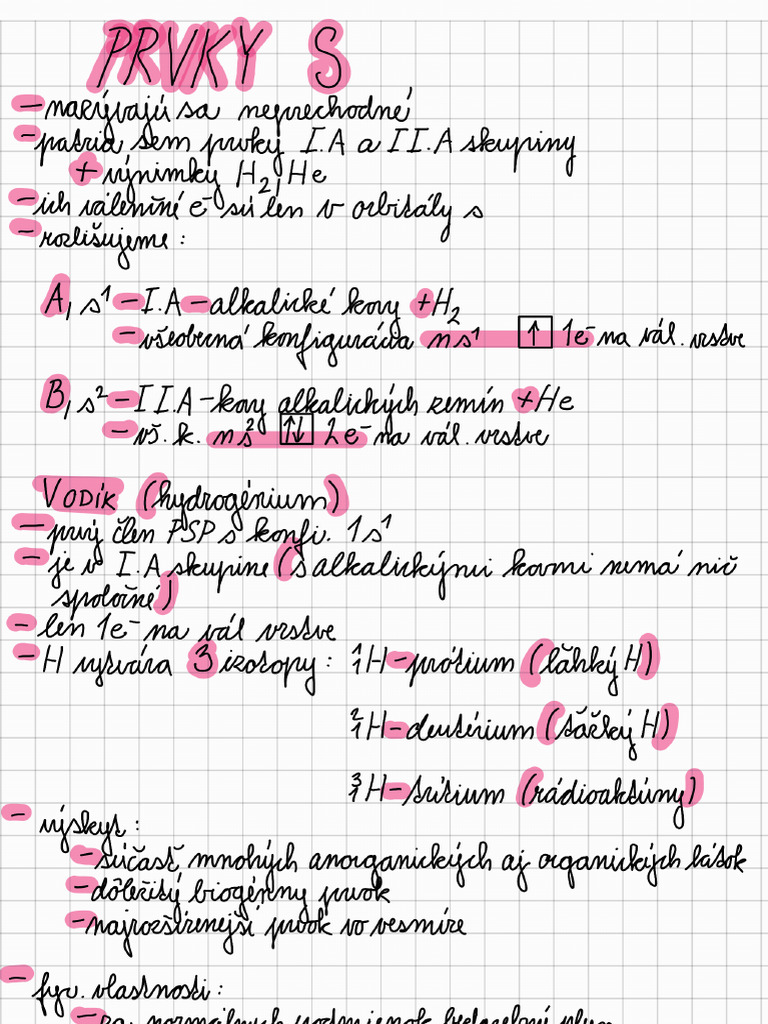 PRVKY S
- nazývajú sa neprechodné
- patria sem prvky I.A a II.A skupiny
+ výnimky H₂, He
- ich valenčné e⁻ sú len v orbitály s
- rozlišujeme:
A, s¹ - I.A - alkalické kovy + H₂
- všeobecná konfigurácia ns¹ ↑ 1e⁻ na vál. vrstve
B, s² - II.A - kovy alkalických zemín + He
- vš. k. ns² ↑↓ 2e⁻ na vál. vrstve
VODÍK (hydrogénium)
- prvý člen PSP s konfi. 1s¹
- je v I.A skupine (s alkalickými kovmi nemá nič
spoločné)
- len 1e⁻ na vál vrstve
- H vytvára 3 izotopy: ¹₁H - prótium (ľăhký H)
²₁H - deutérium (ťăčký H)
³₁H - trítium (rádioaktívny)
- výskyt:
- súčasť mnohých anorganických aj organických látok
- dôležitý biogénny prvok
- najrozšírenejší prvok vo vesmíre
- fyz. vlastnosti:
- za normálnych podmienok bezfarebný plyn